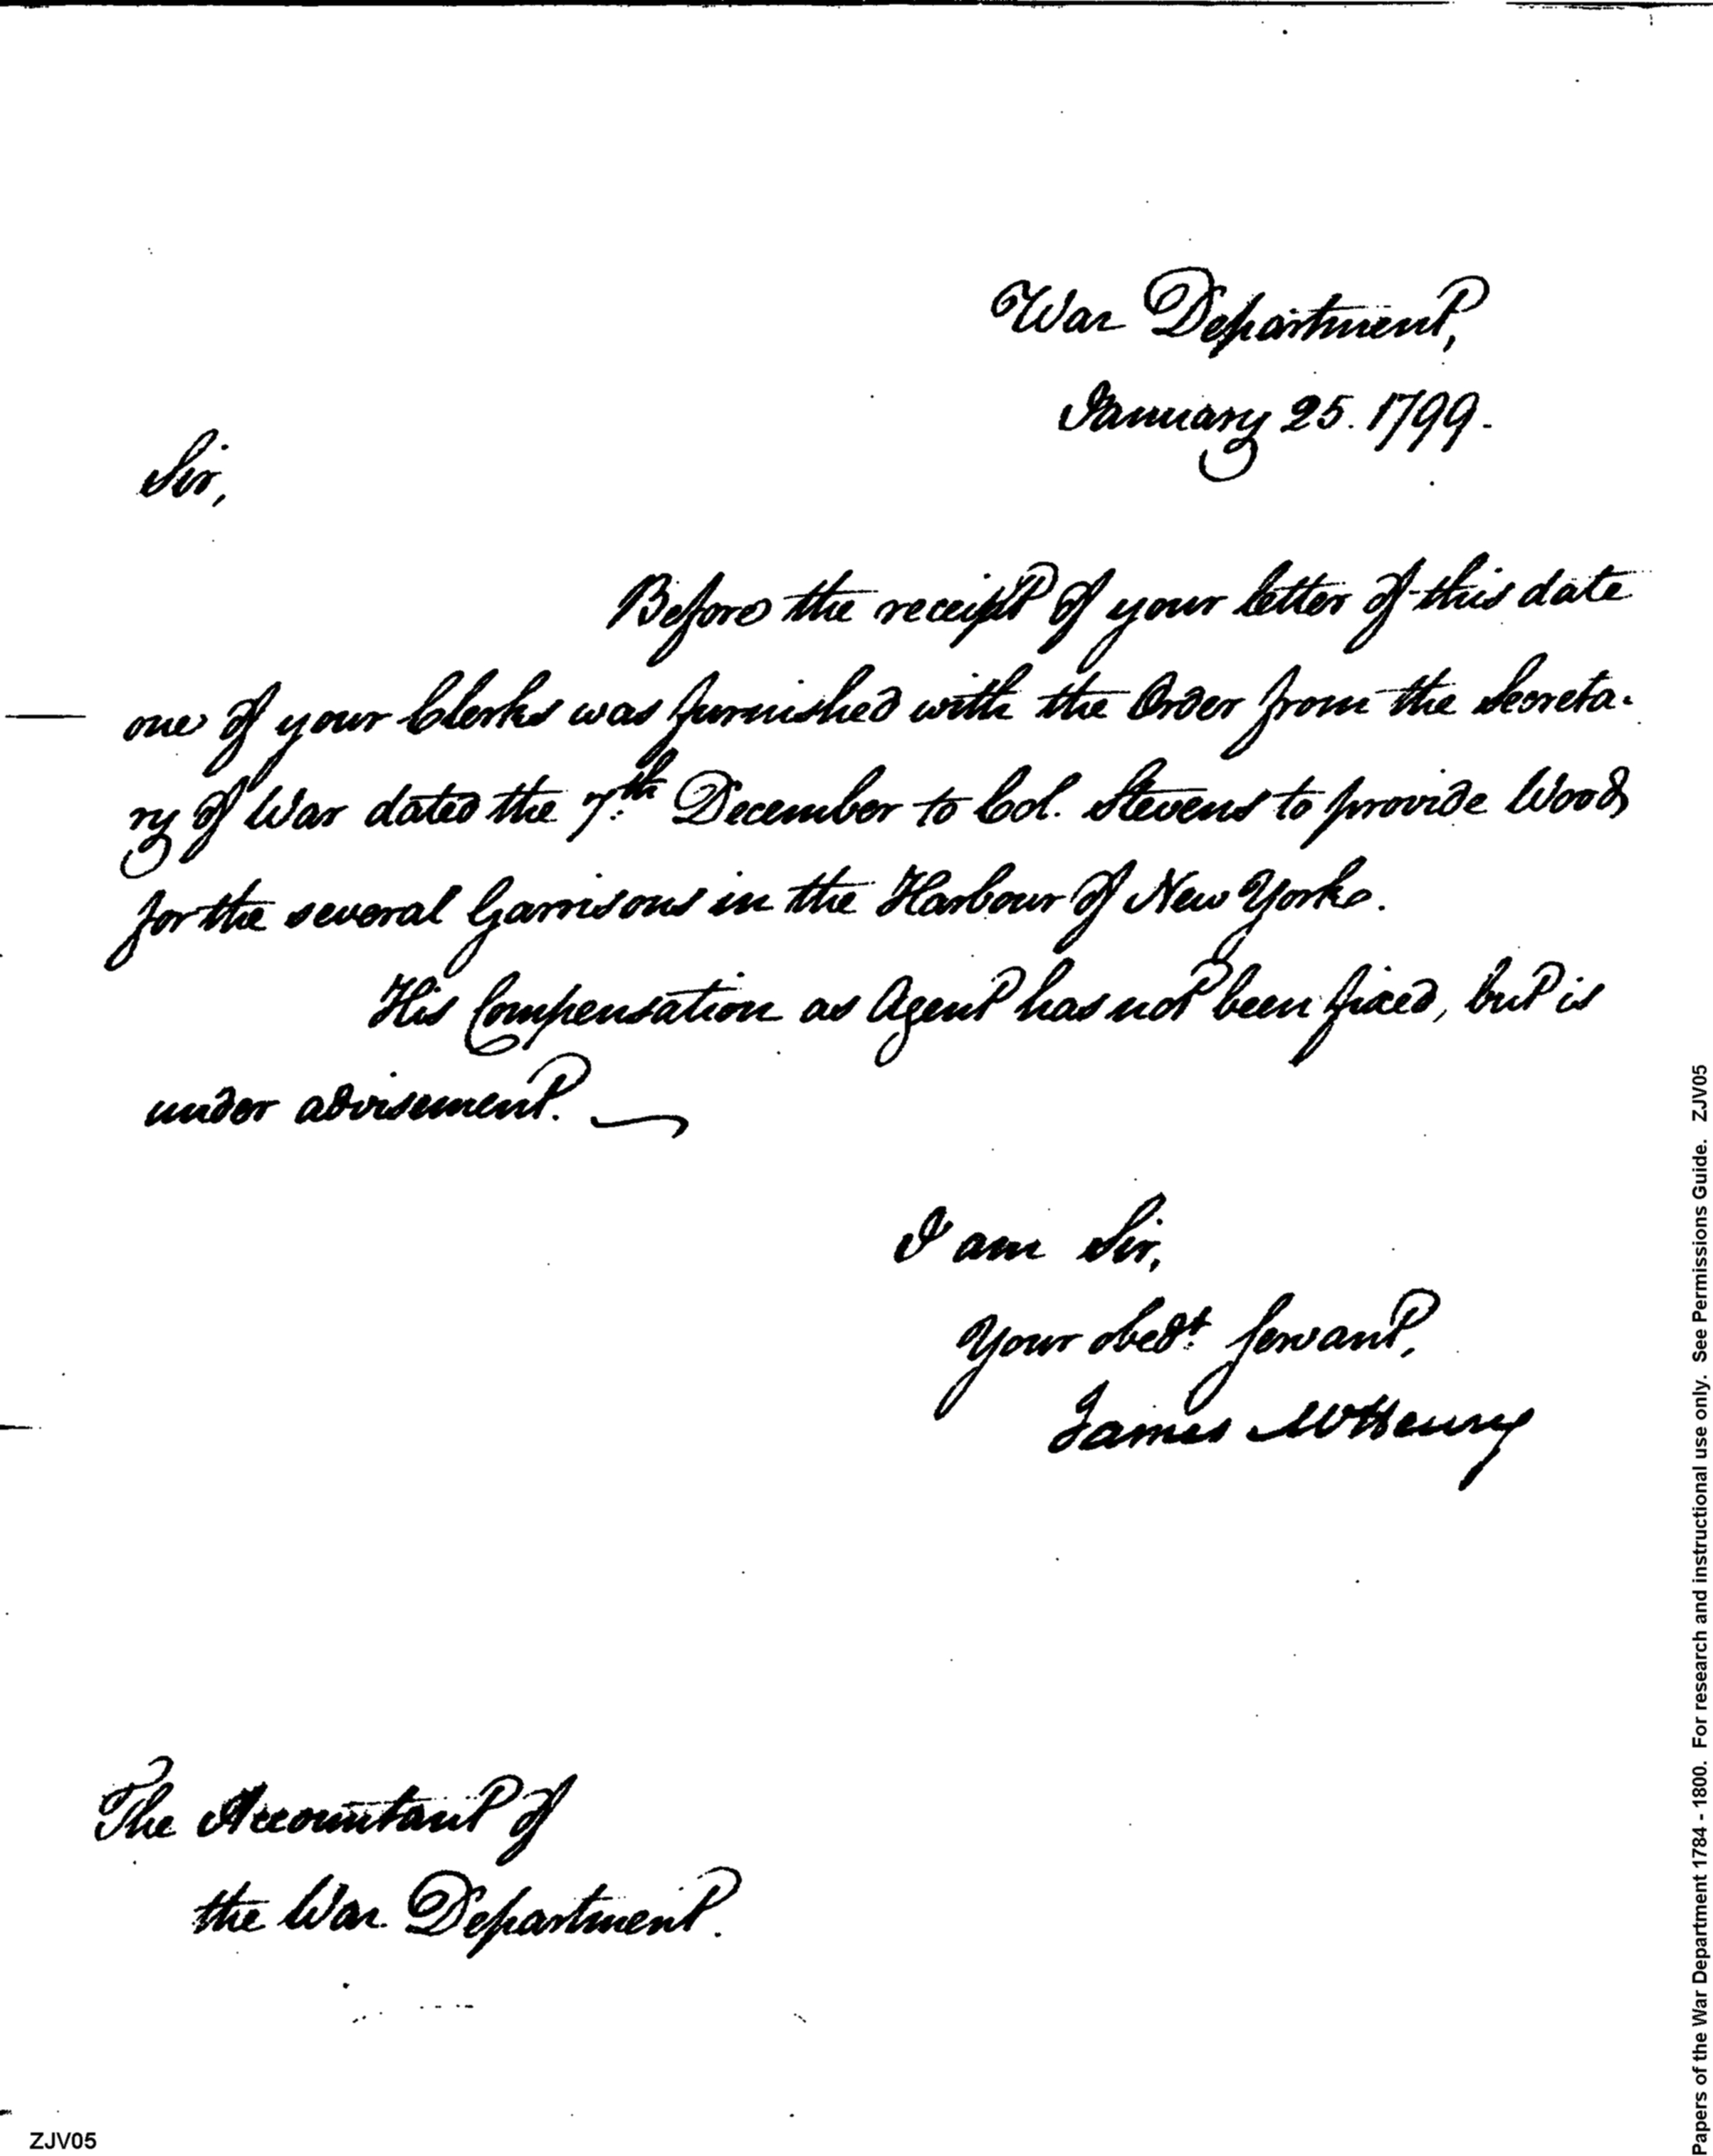 War Department,
January 25. 1799.
Sir,
Before the receipt of your letter of this date
one of your Clerks was furnished with the Order from the Secreta-
ry of War dated the 7.th December to Col. Stevens to provide Wood
for the several Garrisons in the Harbour of New York.
His Compensation as Agent has not been fixed, but is
under advisement.
I am Sir,
Your obedt. Servant,
James McHenry
The Accountant of
the War Department.
ZJV05
Papers of the War Department 1784 - 1800. For research and instructional use only. See Permissions Guide. ZJV05